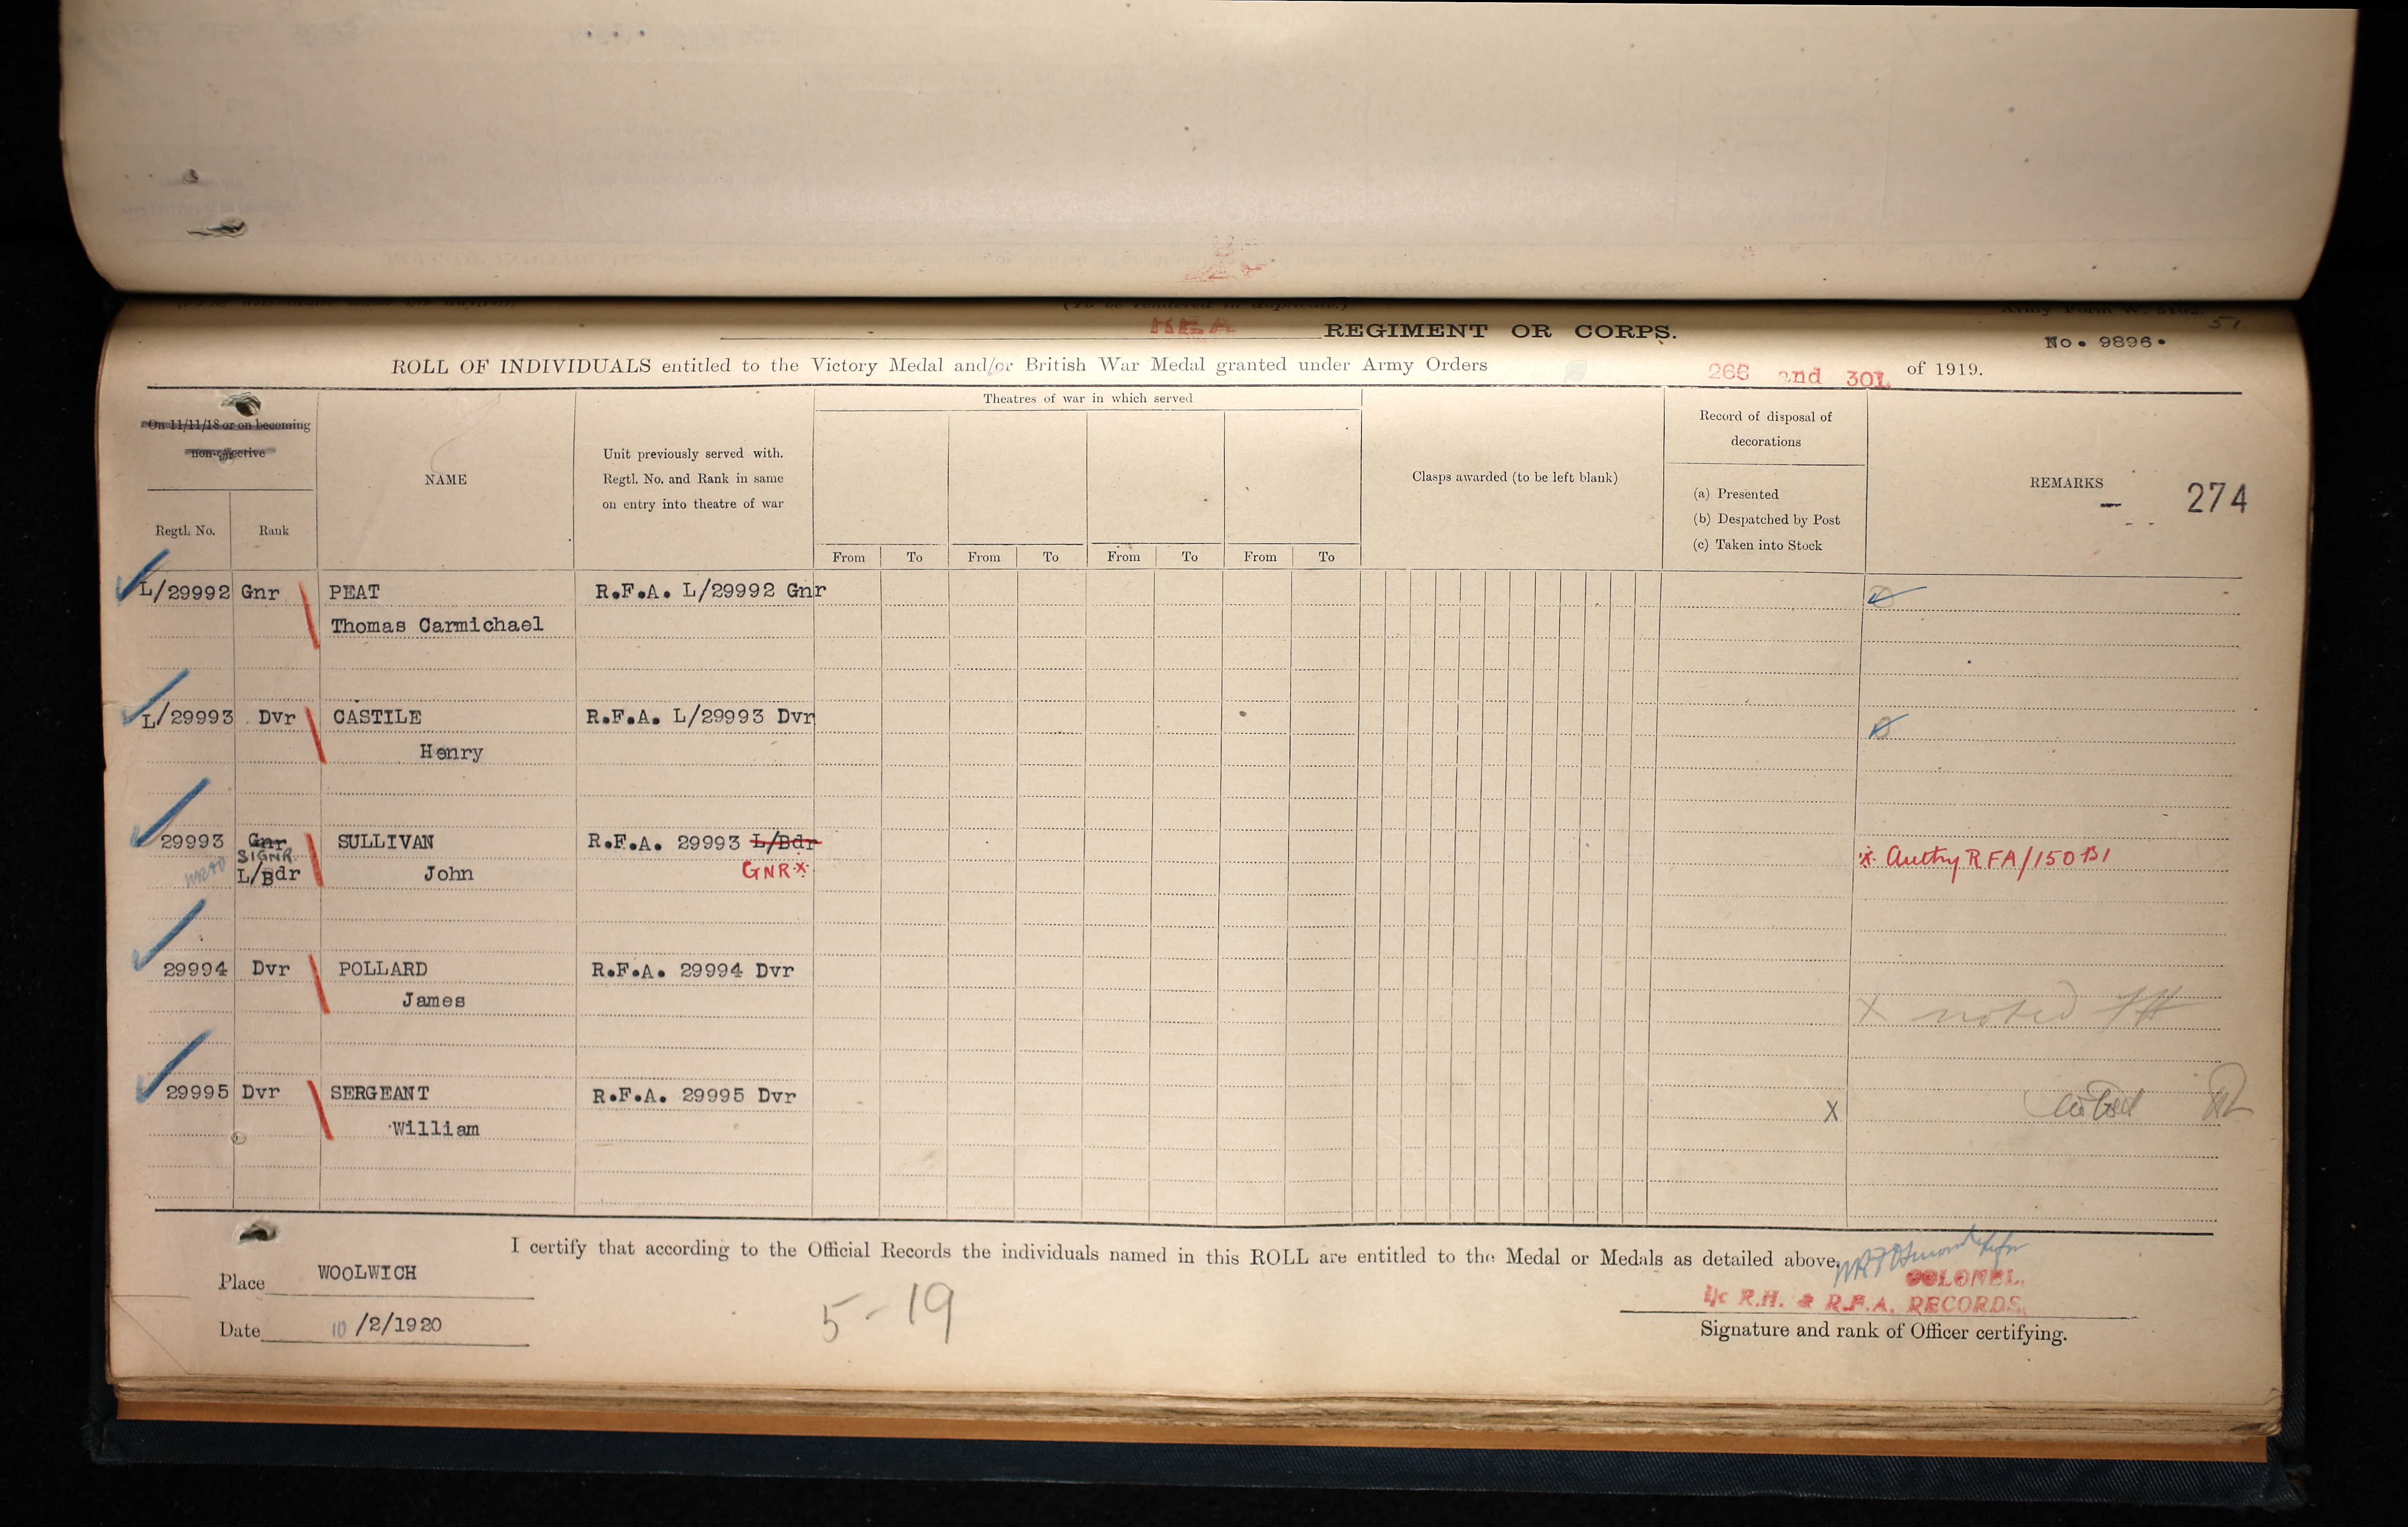 (To be rendered in duplicate.)
Army Form W. 5102.
51
REGIMENT OR CORPS.
No. 9896.
ROLL OF INDIVIDUALS entitled to the Victory Medal and/or British War Medal granted under Army Orders 266 and 301 of 1919.
On 11/11/18 or on becoming
non-effective
Regtl. No.
Rank
NAME
Unit previously served with.
Regtl. No. and Rank in same
on entry into theatre of war
Theatres of war in which served
From To From To From To From To
Clasps awarded (to be left blank)
Record of disposal of
decorations
(a) Presented
(b) Despatched by Post
(c) Taken into Stock
REMARKS
274
L/29992 Gnr PEAT R.F.A. L/29992 Gnr
Thomas Carmichael
L/29993 Dvr CASTILE R.F.A. L/29993 Dvr
Henry
29993 Gnr SULLIVAN R.F.A. 29993 L/Bdr
SIGNR
* Authy RFA/150 B1
L/Bdr John GNR*
29994 Dvr POLLARD R.F.A. 29994 Dvr
James
X noted
29995 Dvr SERGEANT R.F.A. 29995 Dvr
X
William
I certify that according to the Official Records the individuals named in this ROLL are entitled to the Medal or Medals as detailed above.
Place WOOLWICH
COLONEL.
I/c R.H. & R.F.A. RECORDS.
Date 10/2/1920
5-19
Signature and rank of Officer certifying.